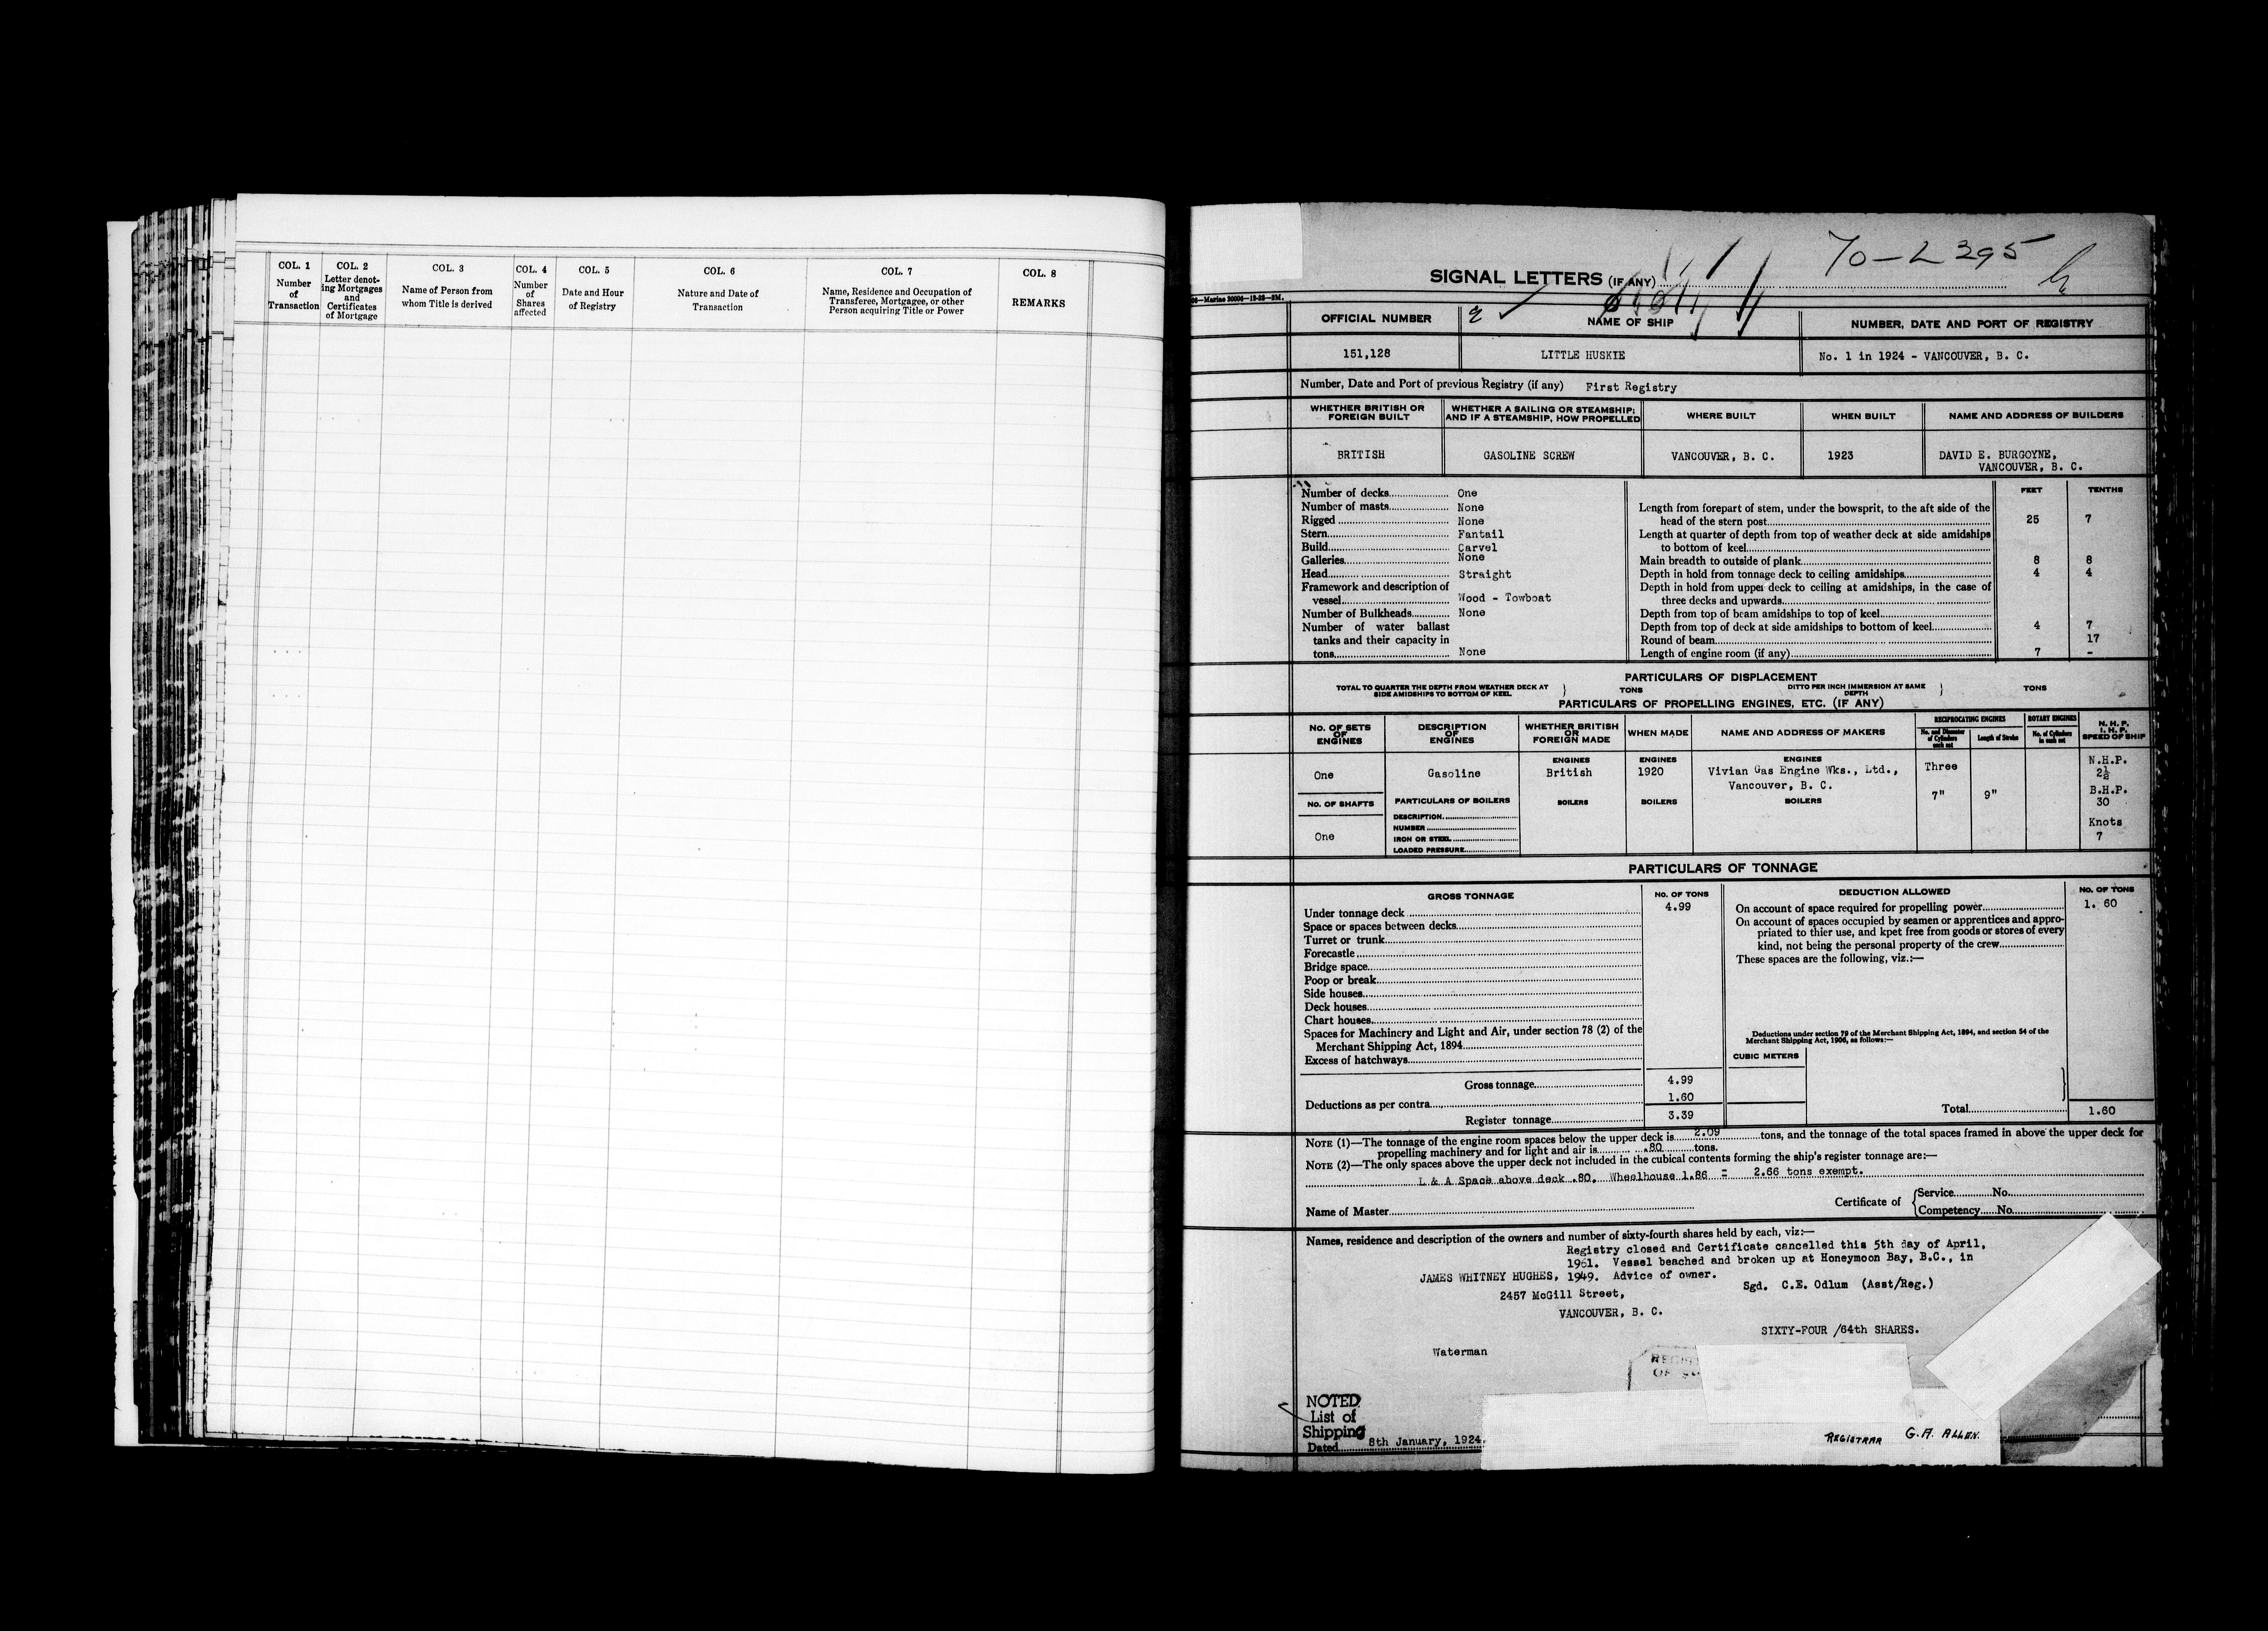 COL. 1
Number
of
Transaction
COL. 2
Letter denot-
ing Mortgages
and
Certificates
of Mortgage
COL. 3
Name of Person from
whom Title is derived
COL. 4
Number
of
Shares
affected
COL. 5
Date and Hour
of Registry
COL. 6
Nature and Date of
Transaction
COL. 7
Name, Residence and Occupation of
Transferee, Mortgagee, or other
Person acquiring Title or Power
COL. 8
REMARKS
70-L395
SIGNAL LETTERS (IF ANY)
OFFICIAL NUMBER
NAME OF SHIP
NUMBER, DATE AND PORT OF REGISTRY
151,128
LITTLE HUSKIE
No. 1 in 1924 - VANCOUVER, B. C.
Number, Date and Port of previous Registry (if any) First Registry
WHETHER BRITISH OR
FOREIGN BUILT
WHETHER A SAILING OR STEAMSHIP;
AND IF A STEAMSHIP, HOW PROPELLED
WHERE BUILT
WHEN BUILT
NAME AND ADDRESS OF BUILDERS
BRITISH
GASOLINE SCREW
VANCOUVER, B. C.
1923
DAVID E. BURGOYNE,
VANCOUVER, B. C.
Number of decks One
Number of masts None
Rigged None
Stern Fantail
Build Carvel
Galleries None
Head Straight
Framework and description of
vessel Wood - Towboat
Number of Bulkheads None
Number of water ballast
tanks and their capacity in
tons None
FEET TENTHS
Length from forepart of stem, under the bowsprit, to the aft side of the
head of the stern post 25 7
Length at quarter of depth from top of weather deck at side amidships
to bottom of keel
Main breadth to outside of plank 8 8
Depth in hold from tonnage deck to ceiling amidships 4 4
Depth in hold from upper deck to ceiling at amidships, in the case of
three decks and upwards
Depth from top of beam amidships to top of keel
Depth from top of deck at side amidships to bottom of keel 4 7
Round of beam 17
Length of engine room (if any) 7 -
PARTICULARS OF DISPLACEMENT
TOTAL TO QUARTER THE DEPTH FROM WEATHER DECK AT
SIDE AMIDSHIPS TO BOTTOM OF KEEL
TONS
DITTO PER INCH IMMERSION AT SAME
DEPTH
TONS
PARTICULARS OF PROPELLING ENGINES, ETC. (IF ANY)
No. OF SETS
OF
ENGINES
DESCRIPTION
OF
ENGINES
WHETHER BRITISH
OR
FOREIGN MADE
WHEN MADE
NAME AND ADDRESS OF MAKERS
RECIPROCATING ENGINES
No. and Diameter
of Cylinders
each set
Length of Stroke
ROTARY ENGINES
No. of Cylinders
in each set
N. H. P.
I. H. P.
SPEED OF SHIP
One
Gasoline
ENGINES
British
ENGINES
1920
ENGINES
Vivian Gas Engine Wks., Ltd.,
Vancouver, B. C.
Three
7"
9"
N.H.P.
2½
B.H.P.
30
Knots
7
NO. OF SHAFTS
One
PARTICULARS OF BOILERS
DESCRIPTION
NUMBER
IRON OR STEEL
LOADED PRESSURE
BOILERS
BOILERS
BOILERS
PARTICULARS OF TONNAGE
GROSS TONNAGE
NO. OF TONS
Under tonnage deck 4.99
Space or spaces between decks
Turret or trunk
Forecastle
Bridge space
Poop or break
Side houses
Deck houses
Chart houses
Spaces for Machinery and Light and Air, under section 78 (2) of the
Merchant Shipping Act, 1894
Excess of hatchways
Gross tonnage 4.99
Deductions as per contra 1.60
Register tonnage 3.39
DEDUCTION ALLOWED
NO. OF TONS
On account of space required for propelling power 1. 60
On account of spaces occupied by seamen or apprentices and appro-
priated to thier use, and kpet free from goods or stores of every
kind, not being the personal property of the crew
These spaces are the following, viz.:—
Deductions under section 79 of the Merchant Shipping Act, 1894, and section 54 of the
Merchant Shipping Act, 1906, as follows:—
CUBIC METERS
Total 1.60
NOTE (1)—The tonnage of the engine room spaces below the upper deck is 2.09 tons, and the tonnage of the total spaces framed in above the upper deck for
propelling machinery and for light and air is .80 tons.
NOTE (2)—The only spaces above the upper deck not included in the cubical contents forming the ship's register tonnage are:—
L & A Space above deck .80, Wheelhouse 1.86 = 2.66 tons exempt.
Name of Master
Certificate of
Service No.
Competency No.
Names, residence and description of the owners and number of sixty-fourth shares held by each, viz:—
Registry closed and Certificate cancelled this 5th day of April,
1961. Vessel beached and broken up at Honeymoon Bay, B.C., in
JAMES WHITNEY HUGHES, 1949. Advice of owner.
Sgd. C.E. Odlum (Asst/Reg.)
2457 McGill Street,
VANCOUVER, B. C.
SIXTY-FOUR /64th SHARES.
Waterman
NOTED
List of
Shipping
Dated 8th January, 1924.
REGISTRAR G.A. ALLEN.